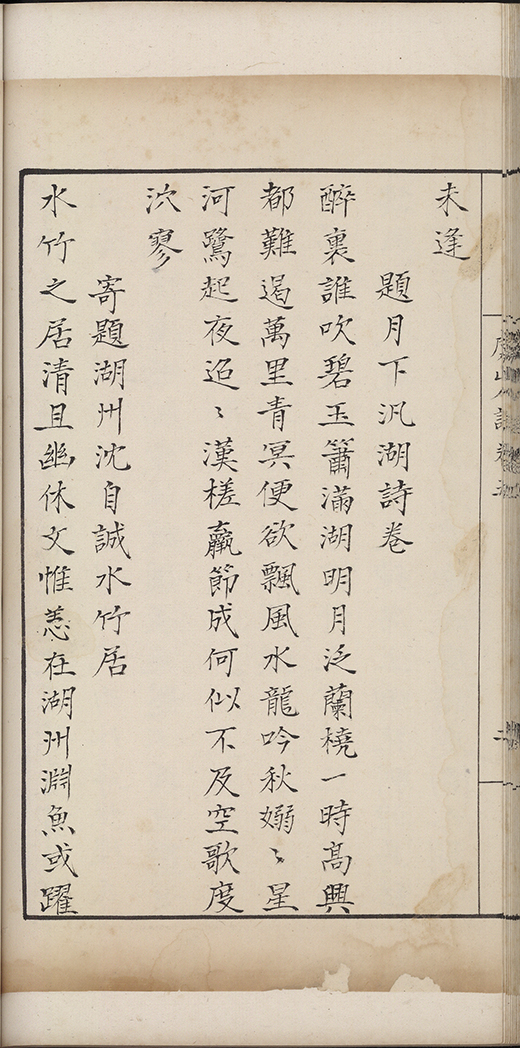 山人詩卷五
未逢
題月下汎湖詩卷
醉裏誰吹碧玉簫滿湖明月泛蘭橈一時高興
都難遏萬里青冥便欲飄風水龍吟秋嫋〻星
河鷺起夜迢〻漢槎羸節成何似不及空歌度
泬寥
寄題湖州沈自誠水竹居
水竹之居清且幽休文惟恙在湖州淵魚或躍